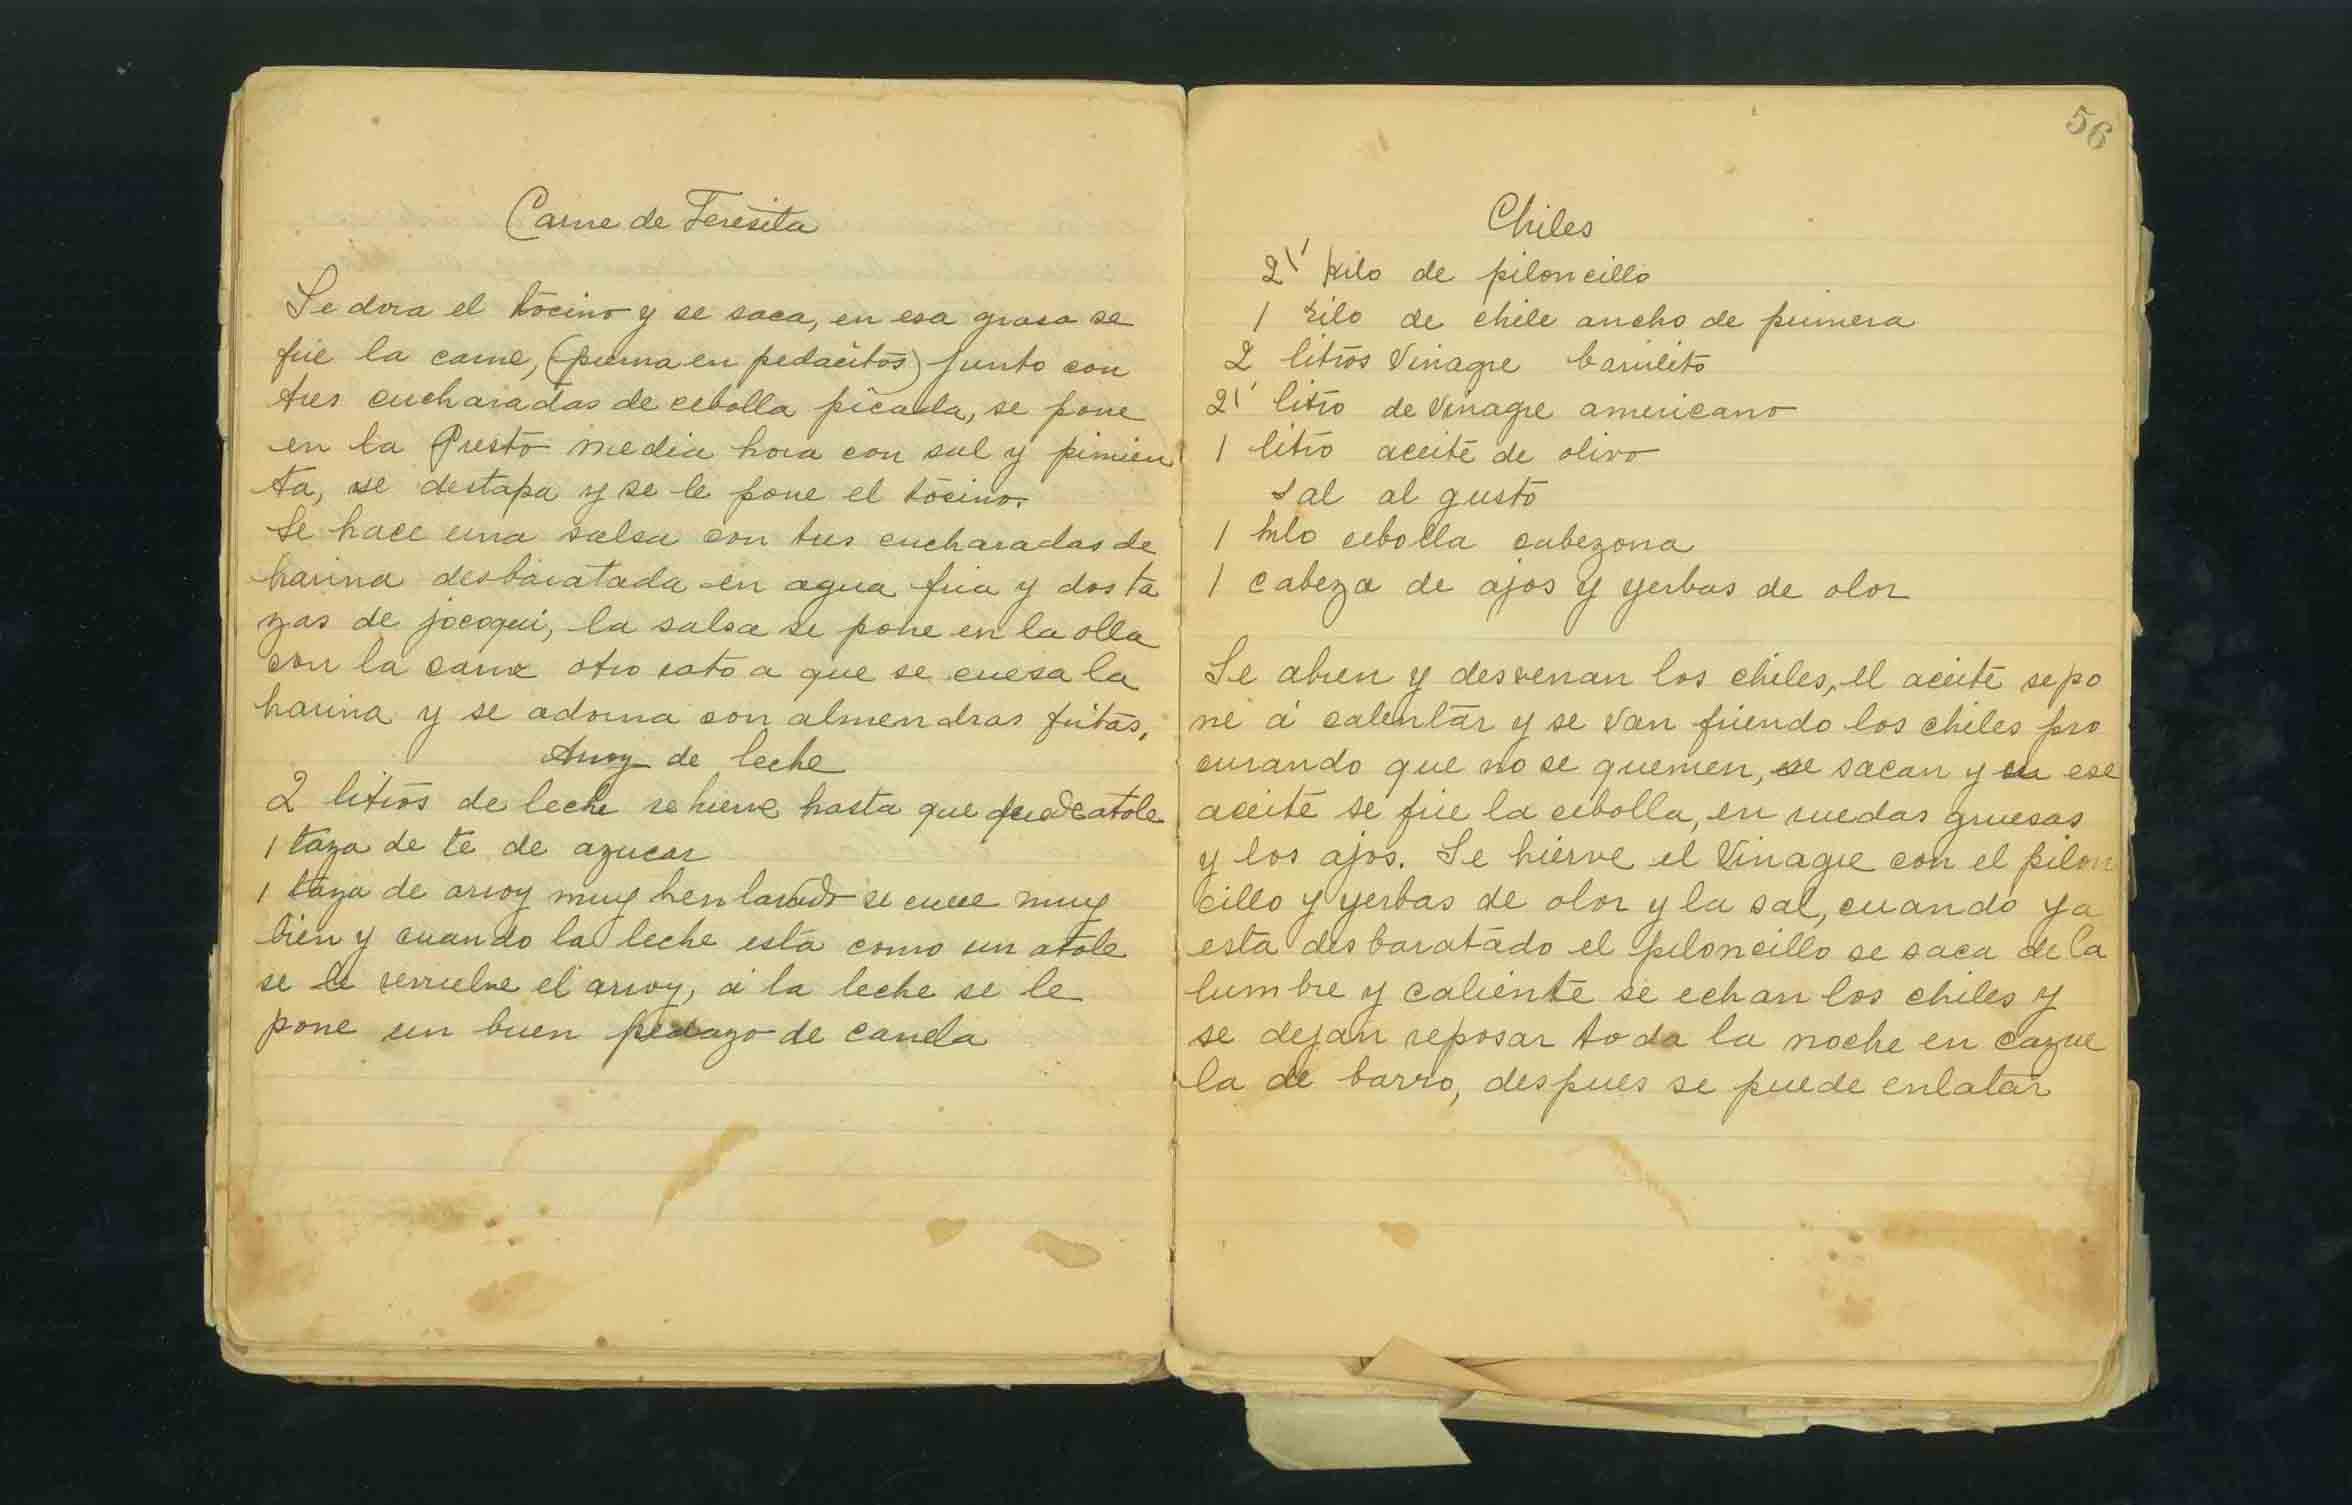 Carne de Teresita
Se dora el tocino y se saca, en esa grasa se
frie la carne, (pierna en pedacitos) junto con
tres cucharadas de cebolla picada, se pone
en la Presto media hora con sal y pimien
ta, se destapa y se le pone el tocino.
Se hace una salsa con tres cucharadas de
harina desbaratada en agua fria y dos ta
zas de jocoqui, la salsa se pone en la olla
con la carne otro rato a que se cuesa la
harina y se adorna con almendras fritas.
Arroz de leche
2 litros de leche se hierve hasta que quede atole
1 taza de te de azucar
1 taza de arroz muy bien lavado se cuece muy
bien y cuando la leche esta como un atole
se le revuelve el arroz, a la leche se le
pone un buen pedazo de canela
56
Chiles
kilo de piloncillo
1 kilo de chile ancho de primera
2 litros Vinagre barrilito
litro de vinagre americano
1 litro aceite de olivo
sal al gusto
1 kilo cebolla cabezona
1 cabeza de ajos y yerbas de olor
Se abren y desvenan los chiles, el aceite se po
ne á calentar y se van friendo los chiles pro
curando que no se quemen, se sacan y en ese
aceite se frie la cebolla, en ruedas gruesas
y los ajos. Se hierve el Vinagre con el pilon
cillo y yerbas de olor y la sal, cuando ya
esta desbaratado el piloncillo se saca de la
lumbre y caliente se echan los chiles y
se dejan reposar toda la noche en cazue
la de barro, despues se puede enlatar